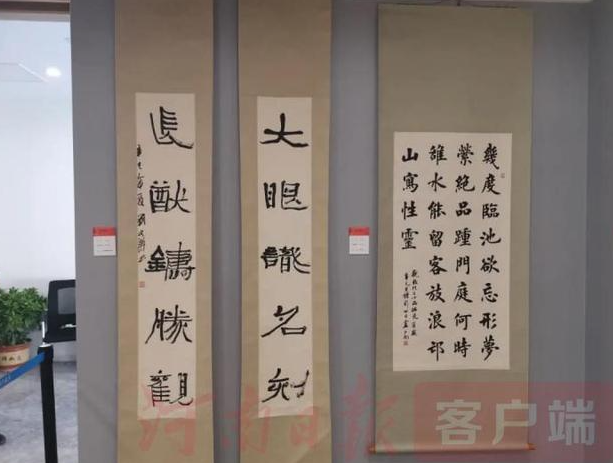 幾度臨池欲忘形夢
縈絶品踵門庭何時
雒水能留客放浪邙
山寫性靈
大眼識名刻
長猷鑄勝觀
河南日报 客户端